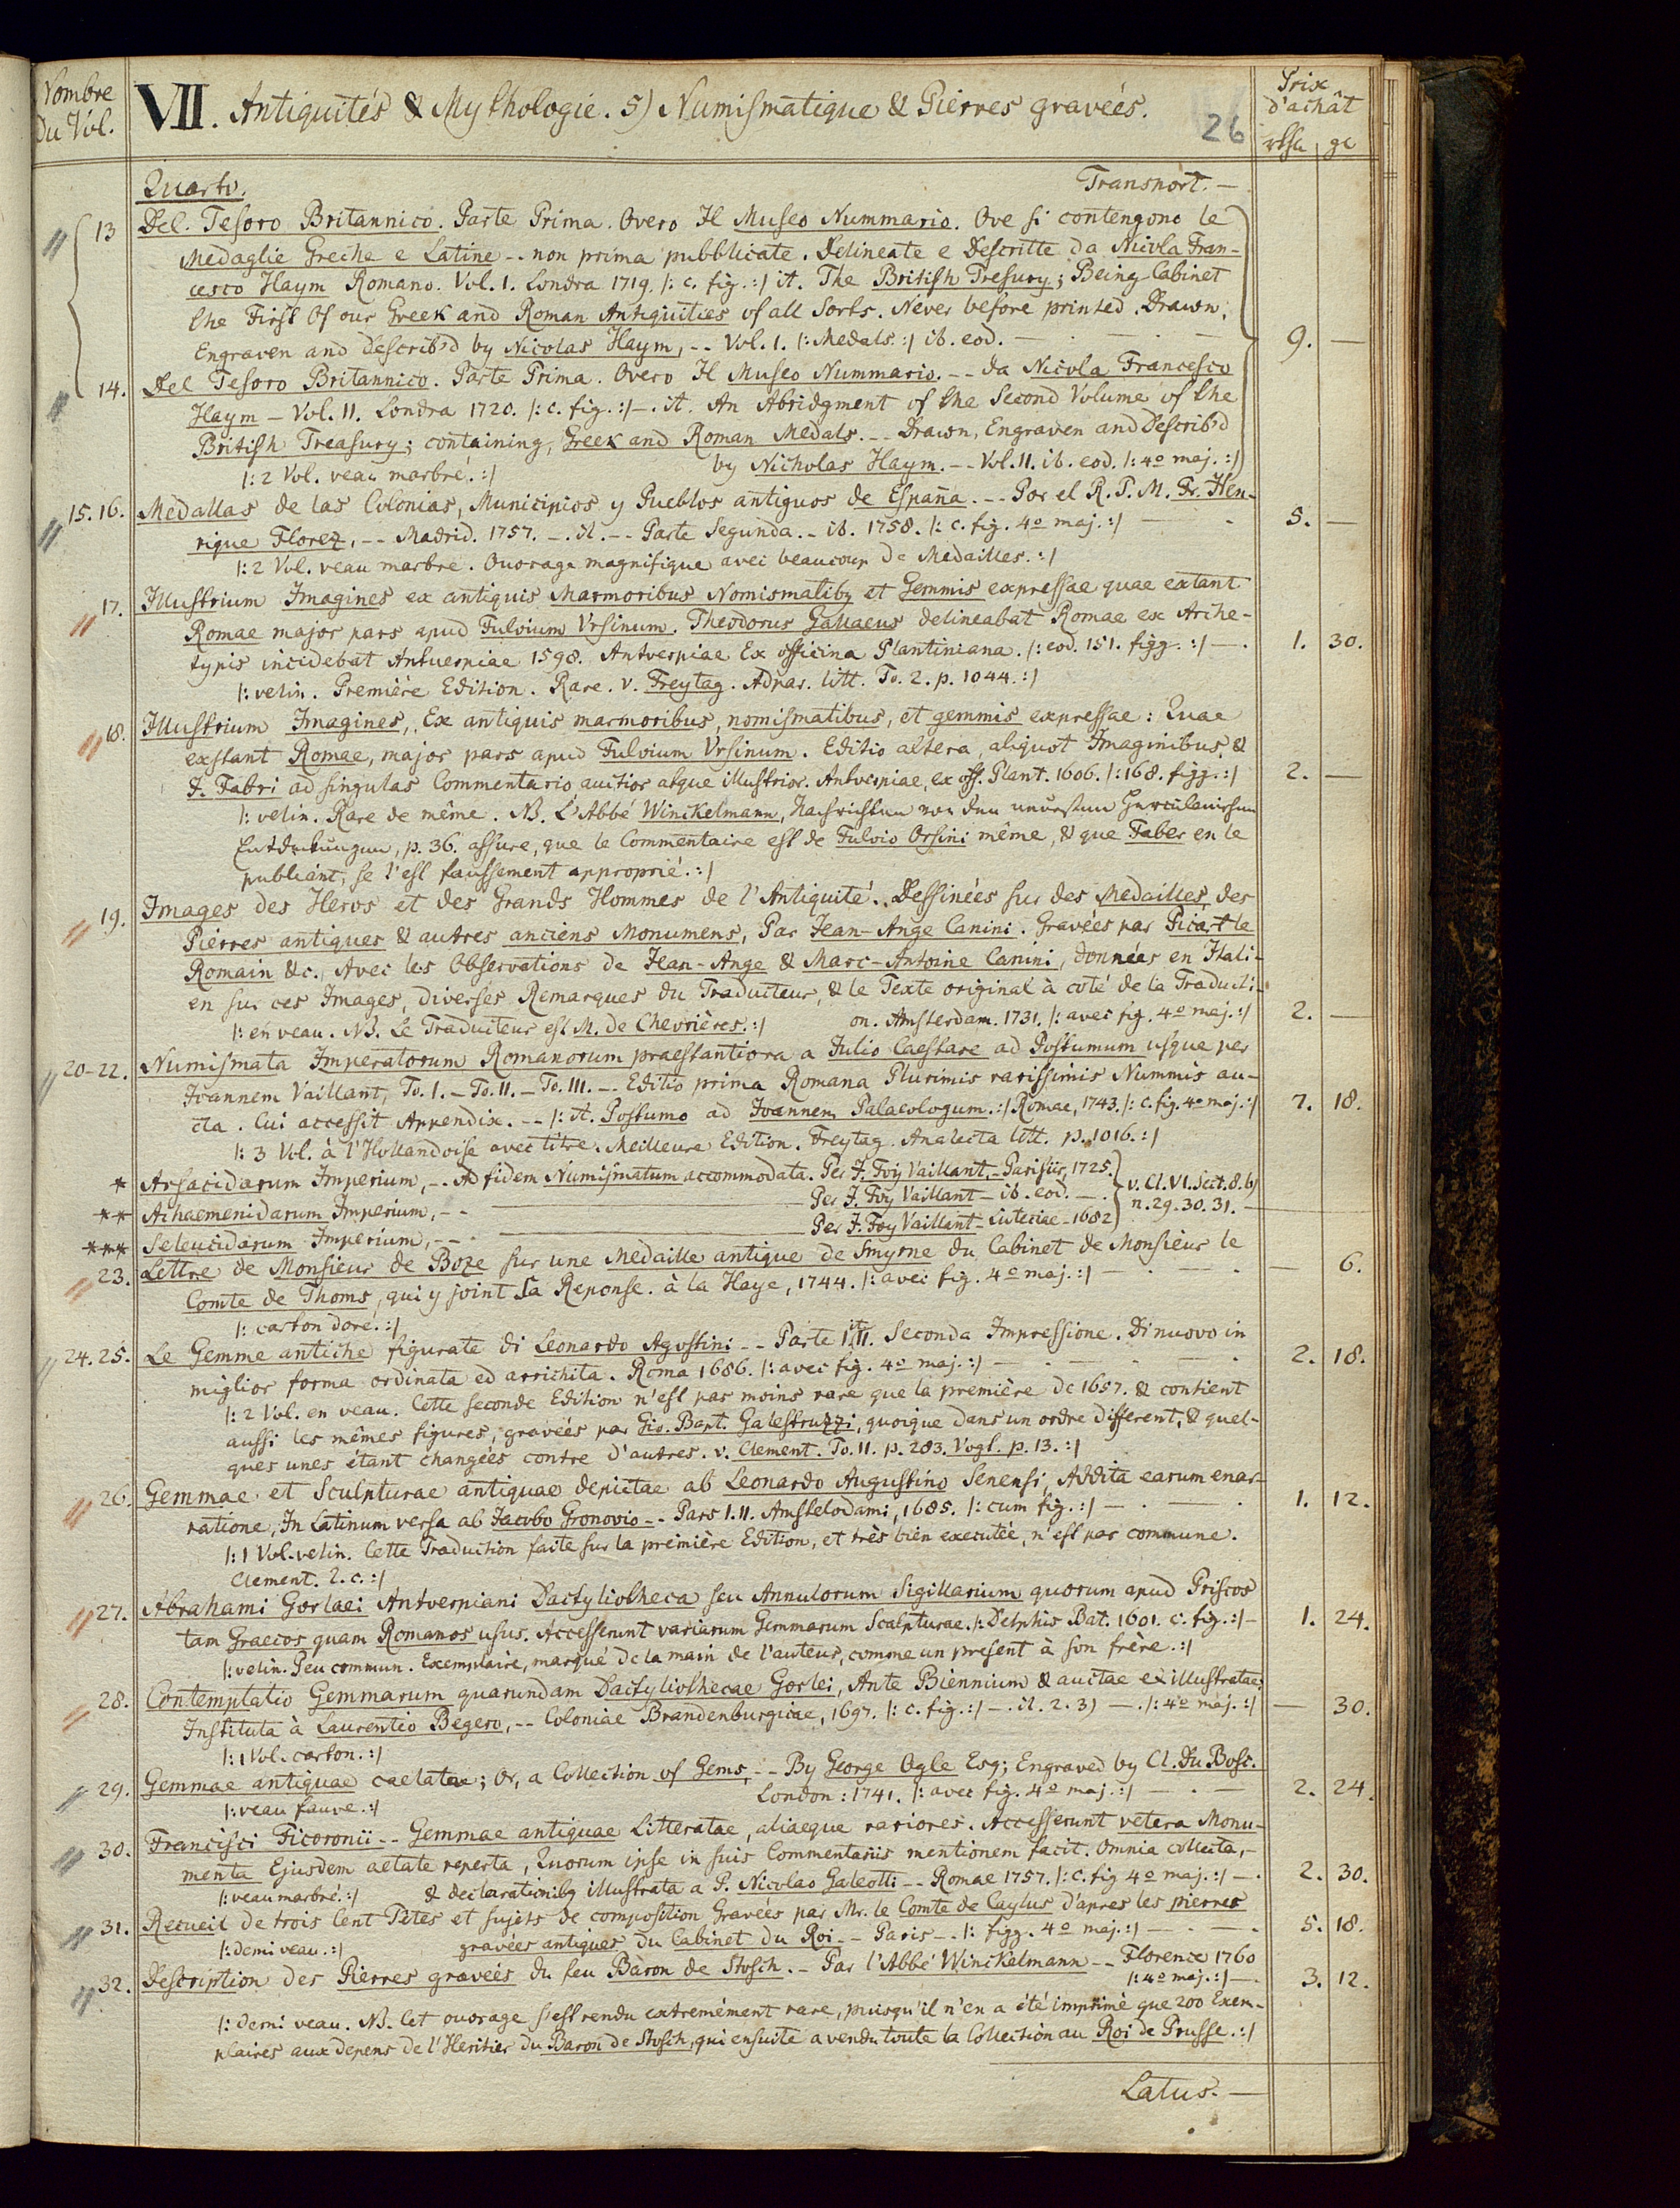 Nombre
du Vol.
VII. Antiquités & Mythologie. 5) Numismatique & Pierres gravées.
26
Prix
d'achât
Quarto. Transport. —
13 Del Tesoro Britannico. Parte Prima. Overo Il Museo Nummario. Ove si contengono le
Medaglie Greche e Latine -. non prima pubblicate. Delineate e Descritte da Nicola Fran-
cesco Haym Romano. Vol. 1. Londra 1719. /: c. fig. :/ it. The British Tresury; Being Cabinet
the First Of our Greek and Roman Antiquities of all Sorts. Never before printed. Drawn,
Engraven and describ'd by Nicolas Haym, -- Vol. 1. /: Medals :/ ib. eod. — 9. —
14. Del Tesoro Britannico. Parte Prima. Overo Il Museo Nummario. -- da Nicola Francesco
Haym — Vol. 11. Londra 1720. /: c. fig. :/ —. it. An Abridgment of the Second Volume of the
British Treasury; containing, Greek and Roman Medals. -- Drawn, Engraven and Describ'd
by Nicholas Haym. -- Vol. 11. ib. eod. /: 4o maj. :/
/: 2 Vol. veau marbré. :/
15. 16. Medallas de las Colonias, Municipios y Pueblos antiguos de España. -- Por el R. P. M. Fr. Hen-
rique Florez, -- Madrid. 1757. —. it. -- Parte Segunda. - ib. 1758. /: c. fig. 4o maj. :/ — 5. —
/: 2 Vol. veau marbré. Ouvrage magnifique avec beaucoup de Medailles. :/
17. Illustrium Imagines ex antiquis Marmoribus Nomismatibq et Gemmis expressae quae extant
Romae major pars apud Fulvium Vrsinum. Theodorus Gallaeus delineabat Romae ex Arche-
typis incidebat Antuerpiae 1598. Antverpiae Ex officina Plantiniana. /: eod. 151. figg. :/ —. 1. 30.
/: velin. Première Edition. Rare. v. Freytag. Adpar. litt. To. 2. p. 1044. :/
18. Illustrium Imagines, Ex antiquis marmoribus, nomismatibus, et gemmis expressae: Quae
exstant Romae, major pars apud Fulvium Vrsinum. Editio altera, aliquot Imaginibus, &
J. Fabri ad singulas Commentario auctior atque illustrior. Antverpiae, ex off. Plant. 1606. /: 168. figg. :/ 2. —
/: velin. Rare de même. NB. L'Abbé Winckelmann, Nachrichten von den neuesten Herculanischen
Entdekungen, p. 36. assure, que le Commentaire est de Fulvio Orsini même, & que Faber en le
publiant, se l'est faussement approprié. :/
19. Images des Heros et des Grands Hommes de l'Antiquité. Dessinées sur des Medailles, des
Pierres antiques & autres anciens Monumens, Par Jean-Ange Canini. Gravées par Picart le
Romain &c. Avec les Observations de Jean-Ange & Marc-Antoine Canini, données en Itali-
en sur ces Images, diverses Remarques du Traducteur, & le Texte original à coté de la Traducti-
on. Amsterdam. 1731. /: avec fig. 4o maj. :/ 2. —
/: en veau. NB. Le Traducteur est M. de Chevrières. :/
20-22. Numismata Imperatorum Romanorum praestantiora a Julio Caesare ad Postumum usque per
Joannem Vaillant, To. 1. — To. 11. — To. 111. —. Editio prima Romana Plurimis rarissimis Nummis au-
cta. Cui accessit Appendix. -- /: it. Postumo ad Joannem Palaeologum. :/ Romae, 1743. /: c. fig. 4o maj. :/ 7. 18.
/: 3 Vol. à l'Hollandoise avec titre. Meilleure Edition. Freytag. Analecta litt. p. 1016. :/
* Arsacidarum Imperium, -. Ad fidem Numismatum accommodata. Per J. Foy Vaillant, - Parisiis, 1725.
** Achaemenidarum Imperium, -- Per J. Foy Vaillant — ib. eod. —.
*** Seleucidarum Imperium, -- Per J. Foy Vaillant - Luteciae - 1682
v. Cl. VI. Sect. 8. b)
n. 29. 30. 31. —
23. Lettre de Monsieur de Boze sur une Medaille antique de Smyrne du Cabinet de Monsieur le
Comte de Thoms, qui y joint sa Reponse. à la Haye, 1744. /: avec fig. 4o maj. :/ — 6.
/: carton doré. :/
24. 25. Le Gemme antiche figurate di Leonardo Agostini -- Parte 1. it. 11. Seconda Impressione. Di nuovo in
miglior forma ordinata ed arrichita. Roma 1686. /: avec fig. 4o maj. :/ — 2. 18.
/: 2 Vol. en veau. Cette seconde Edition n'est pas moins rare que la première de 1657. & contient
aussi les mêmes figures, gravées par Gio. Bapt. Galestruzzi, quoique dans un ordre different, & quel-
ques unes étant changées contre d'autres. v. Clement. To. 11. p. 283. Vogt. p. 13. :/
26. Gemmae et Sculpturae antiquae depictae ab Leonardo Augustino Senensi, Addita earum enar-
ratione, In Latinum versa ab Jacobo Gronovio -- Pars 1. 11. Amstelodami, 1685. /: cum fig. :/ — 1. 12.
/: 1 Vol. velin. Cette Traduction faite sur la prémière Edition, et très bien executée, n'est pas commune.
Clement. l. c. :/
27. Abrahami Gorlaei Antverpiani Dactyliotheca seu Annulorum Sigillarium quorum apud Priscos
tam Graecos quam Romanos usus. Accesserunt variarum Gemmarum Scalpturae. /: Delphis Bat. 1601. c. fig. :/ — 1. 24.
/: velin. Peu commun. Exemplaire, marqué de la main de l'auteur, comme un present à son frère. :/
28. Contemplatio Gemmarum quarundam Dactyliothecae Gorlei, Ante Biennium & auctae et illustratae;
Instituta à Laurentio Begero, -- Coloniae Brandenburgicae, 1697. /: c. fig. :/ —. it. 2. 3) —. /: 4o maj. :/ — 30.
/: 1 Vol. carton. :/
29. Gemmae antiquae caelatae; Or, a Collection of Gems, -- By George Ogle Esq; Engraved by Cl. Du Bosc.
London: 1741. /: avec fig. 4o maj. :/ — 2. 24.
/: veau fauve. :/
30. Francisci Ficoronii -- Gemmae antiquae Litteratae, aliaeque rariores. Accesserunt vetera Monu-
menta Ejusdem aetate reperta, Quorum ipse in suis Commentariis mentionem facit. Omnia collecta, -
& declarationibq illustrata a P. Nicolao Galeotti -- Romae 1757. /: c. fig 4o maj. :/ —. 2. 30.
/: veau marbré. :/
31. Recueil de trois Cent Têtes et sujets de composition Gravées par Mr. le Comte de Caylus d'apres les pierres
gravées antiques du Cabinet du Roi -- Paris —. /: figg. 4o maj. :/ — 5. 18.
/: demi veau. :/
32. Description des Pierres gravées du feu Baron de Stosch. - Par l'Abbé Winckelmann -- Florence 1760
/: 4o maj. :/ —. 3. 12.
/: demi veau. NB. Cet ouvrage s'est rendu extremément rare, puisqu'il n'en a été imprimé que 200 Exem-
plaires aux depens de l'Heritier du Baron de Stosch, qui ensuite a vendu toute la Collection au Roi de Prusse. :/
Latus. —